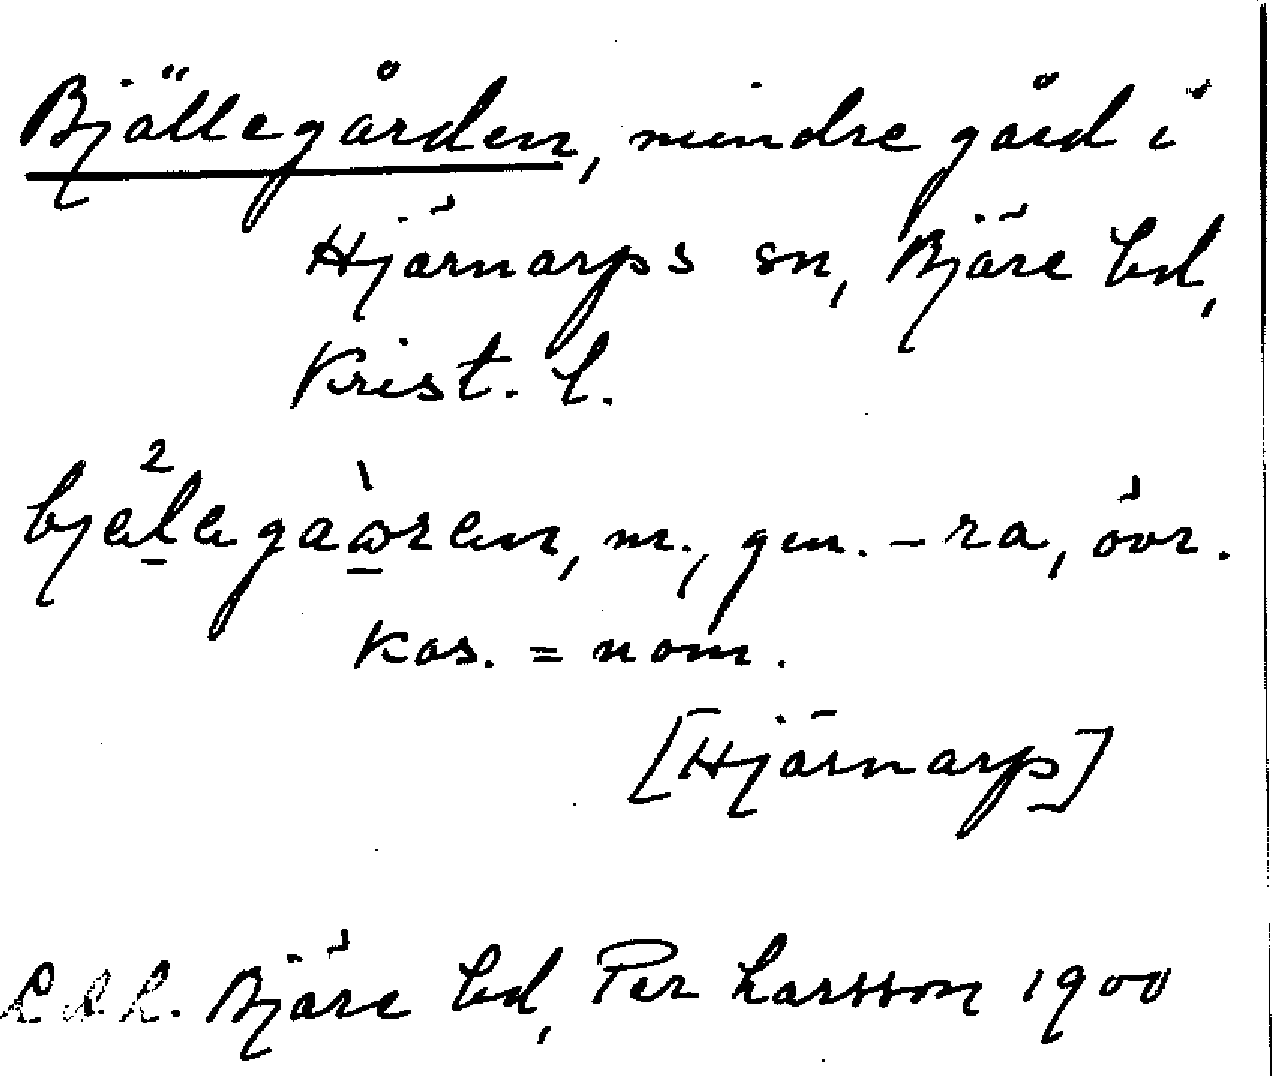 Bjällegården, mindre gård i
Hjärnarps sn, Bjäre hd,
Krist. l.
bjel²egaàren, m., gen. -ra, övr.
kas. = nom.
[Hjärnarp]
Bjäre hd, Per Larsson 1900